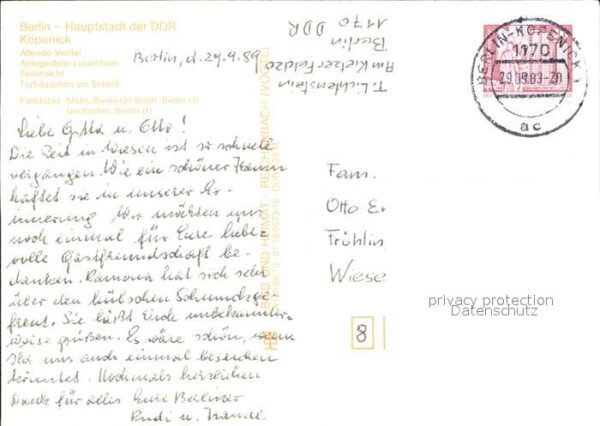 Berlin – Hauptstadt der DDR
Köpenick
Allende-Viertel
Anlegestelle Luisenhain
Teilansicht
Torhäuschen am Schloß
Farbfotos: Mohr, Berlin (2) Boldt, Berlin (1)
Deutscher, Berlin (1)
Berlin, d. 29.9.89
T. Lichtenstein
Am Kietzer Feld 20
Berlin
1170 DDR
BERLIN-KÖPENICK 1
1170
29.09.89-20
ac
Liebe Gitta u. Otto!
Die Zeit in Wiesen ist so schnell
vergangen. Wie ein schöner Traum
haftet sie in unserer Er-
innerung. Wir möchten uns
noch einmal für Eure liebe-
volle Gastfreundschaft be-
danken. Ramona hat sich sehr
über den hübschen Schmuck ge-
freut. Sie läßt Euch unbekannter-
weise grüßen. Es wäre schön, wenn
Ihr uns auch einmal besuchen
könntet. Nochmals herzlichen
Dank für alles Eure Berliner
Rudi u.
BILD UND HEIMAT REICHENBACH (VOGTL)
Fam.
Otto E
Frühlin
Wiese
8
privacy protection
Datenschutz